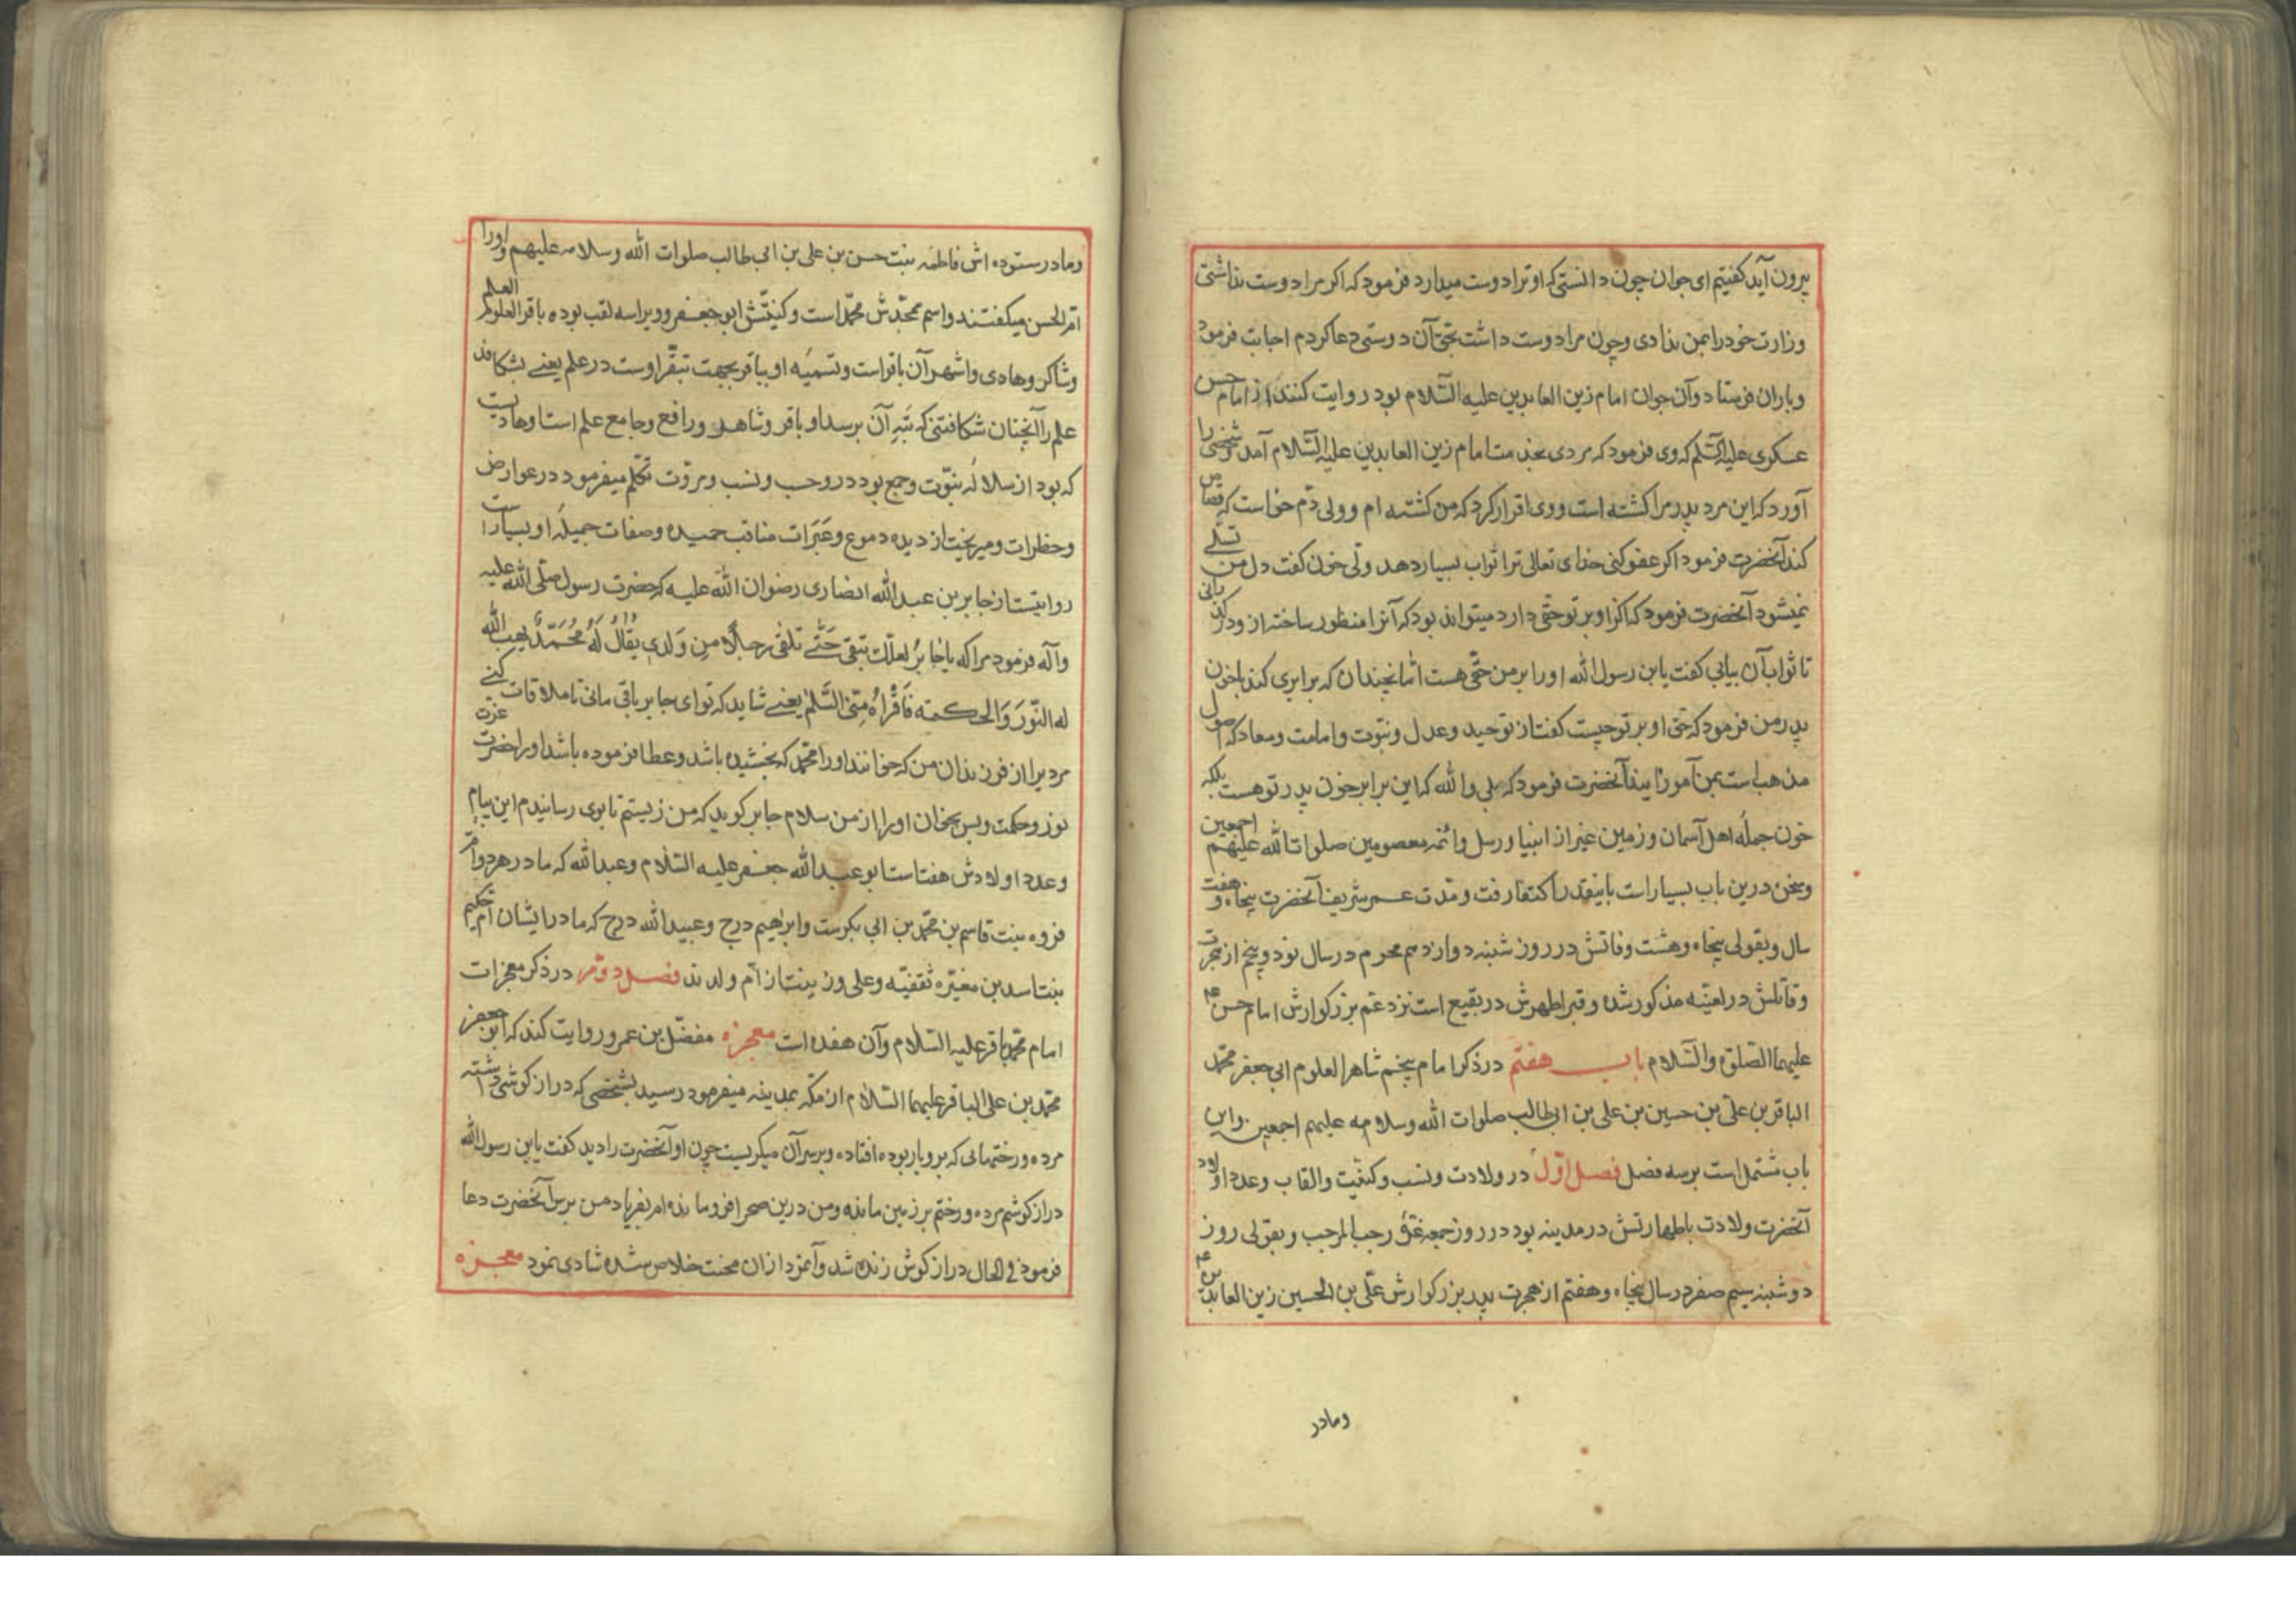 بیرون آید کفتیم ای جوان چون دانستی که او ترا دوست میدارد فرمود که اکر مرا دوست نداشتی
وزارت خود را بمن ندادی وچون مرا دوست داشت بحق آن دوستی دعا کردم اجابت فرمود
وباران فرستاد وآن جوان امام زین العابدین علیه السّلام بود روایت کنند از امام حسن
عسکری علیه السّلم که وی فرمود که مردی بخدمت امام زین العابدین علیه السّلام آمد وشخصی را
آورد که این مرد پدر مرا کشته است ووی اقرار کرد که من کشته ام وولی دم خواست که قصاص
کند آنحضرت فرمود اکر عفو کنی خدای تعالی ترا ثواب بسیار دهد ولی خون کفت دل من تسلی
نمیشود آنحضرت فرمود که اکر او بر تو حقی دارد میتواند بود که آنرا منظور ساخته از و درکذرانی
تا ثواب آن بیابی کفت یا بن رسول الله او را بر من حقی هست اما نچندان که برابری کند باخون
پدر من فرمود که حق او بر تو چیست کفت از توحید وعدل ونبوت وامامت ومعاد که اصول
مذهب است بمن آموزانیده آنحضرت فرمود که بلی والله که این برابر خون پدر تو هست بلکه
خون جمله اهل آسمان وزمین غیر از انبیا ورسل وائمه معصومین صلوات الله علیهم اجمعین
وسخن درین باب بسیار است باینقدر اکتفا رفت ومدت عمر شریف آنحضرت پنجاه وهفت
سال وبقولی پنجاه وهشت وفاتش در روز شبنه دوازدهم محرم در سال نود وپنج از هجرت
وقاتلش در لعنیه مذکور شده وقبر اطهرش در بقیع است نزد عم بزرکوارش امام حسن ع‍
علیهما الصّلوة والسّلام باب هفتم در ذکر امام پنجم شاهر العلوم ابی جعفر محمّد
الباقر بن علی بن حسین بن علی بن ابی طالب صلوات الله وسلامه علیهم اجمعین واین
باب مشتمل است بر سه فصل فصل اوّل در ولادت ونسب وکنیّت والقاب وعدد اولاد
آنحضرت ولادت باطهارتش در مدینه بود در روز جمعه غرّۀ رجب المرجب وبقولی روز
دوشنبه سیم صفر در سال پنجاه وهفتم از هجرت پدر بزرکوارش علی بن الحسین زین العابدین ع‍
ومادر
ومادر ستوده اش فاطمه بنت حسن بن علی بن ابی طالب صلوات الله وسلامه علیهم واورا
امّ الحسن میکفتند واسم محمّدش محمّد است وکنیتش ابو جعفر وویرا سه لقب بوده باقر العلوم العلم
وشاکر وهادی واشهر آن باقر است وتسمیه او بباقر بجهت تبقّر اوست در علم یعنی بشکافد
علم را آنچنان شکافتنی که بته آن برسد او باقر وشاهر ورافع وجامع علم است او هادیست
که بود از سلاله نبوّت وجمع بود درو حسب ونسب ومروّت تکلم میفرمود در عوارض
وخطرات ومیریخت از دیده دموع وعبرات مناقب حمیده وصفات جمیلۀ او بسیار است
روایتست از جابر بن عبد الله انصاری رضوان الله علیه که حضرت رسول صلّی الله علیه
وآله فرمود مرا که یا جابر لعلّک تبقی حَتّٰی تلقی رجلاً من ولدی یقالُ لَهُ مُحَمَّد یهب الله
له النّورَ وَالحکمته فَاقْرَاهُ منّی السّلم یعنی شاید که تو ای جابر باقی مانی تا ملاقات کنی
مردیرا از فرزندان من که خوانند اورا محمّد که بخشیده باشد وعطا فرموده باشد اورا حضرت عزت
نور وحکمت وپس بخوان اورا از من سلام جابر کوید که من زیستم تا بوی رسانیدم این پیام
وعدد اولادش هفت است ابو عبد الله جعفر علیه السّلام وعبد الله که مادر هر دو امّ
فروه بنت قاسم بن محمّد بن ابی بکرست وابرهیم درج وعبید الله درج که مادر ایشان امّ حکیم
بنت اسد بن مغیره ثقفیّه وعلی وزینت از امّ ولدند فصل دوّم در ذکر معجزات
امام محمّد باقر علیه السّلام وآن هفده است معجزه مفضّل بن عمرو روایت کند که ابو جعفر
محمّد بن علی الباقر علیهما السّلام از مکّه بمدینه میفرمود رسید بشخصی که دراز کوشی داشته
مرده ورختهائی که برو بار بوده افتاده وبرسر آن میکریست چون او آنحضرت را دید کفت یا بن رسول الله
دراز کوشم مرده ورختم بر زمین مانده ومن درین صحرا فرومانده ام بفریاد من برس آنحضرت دعا
فرمود فی الحال دراز کوش زنده شد وآنمرد از ان محنت خلاص شده شادی نمود معجزه